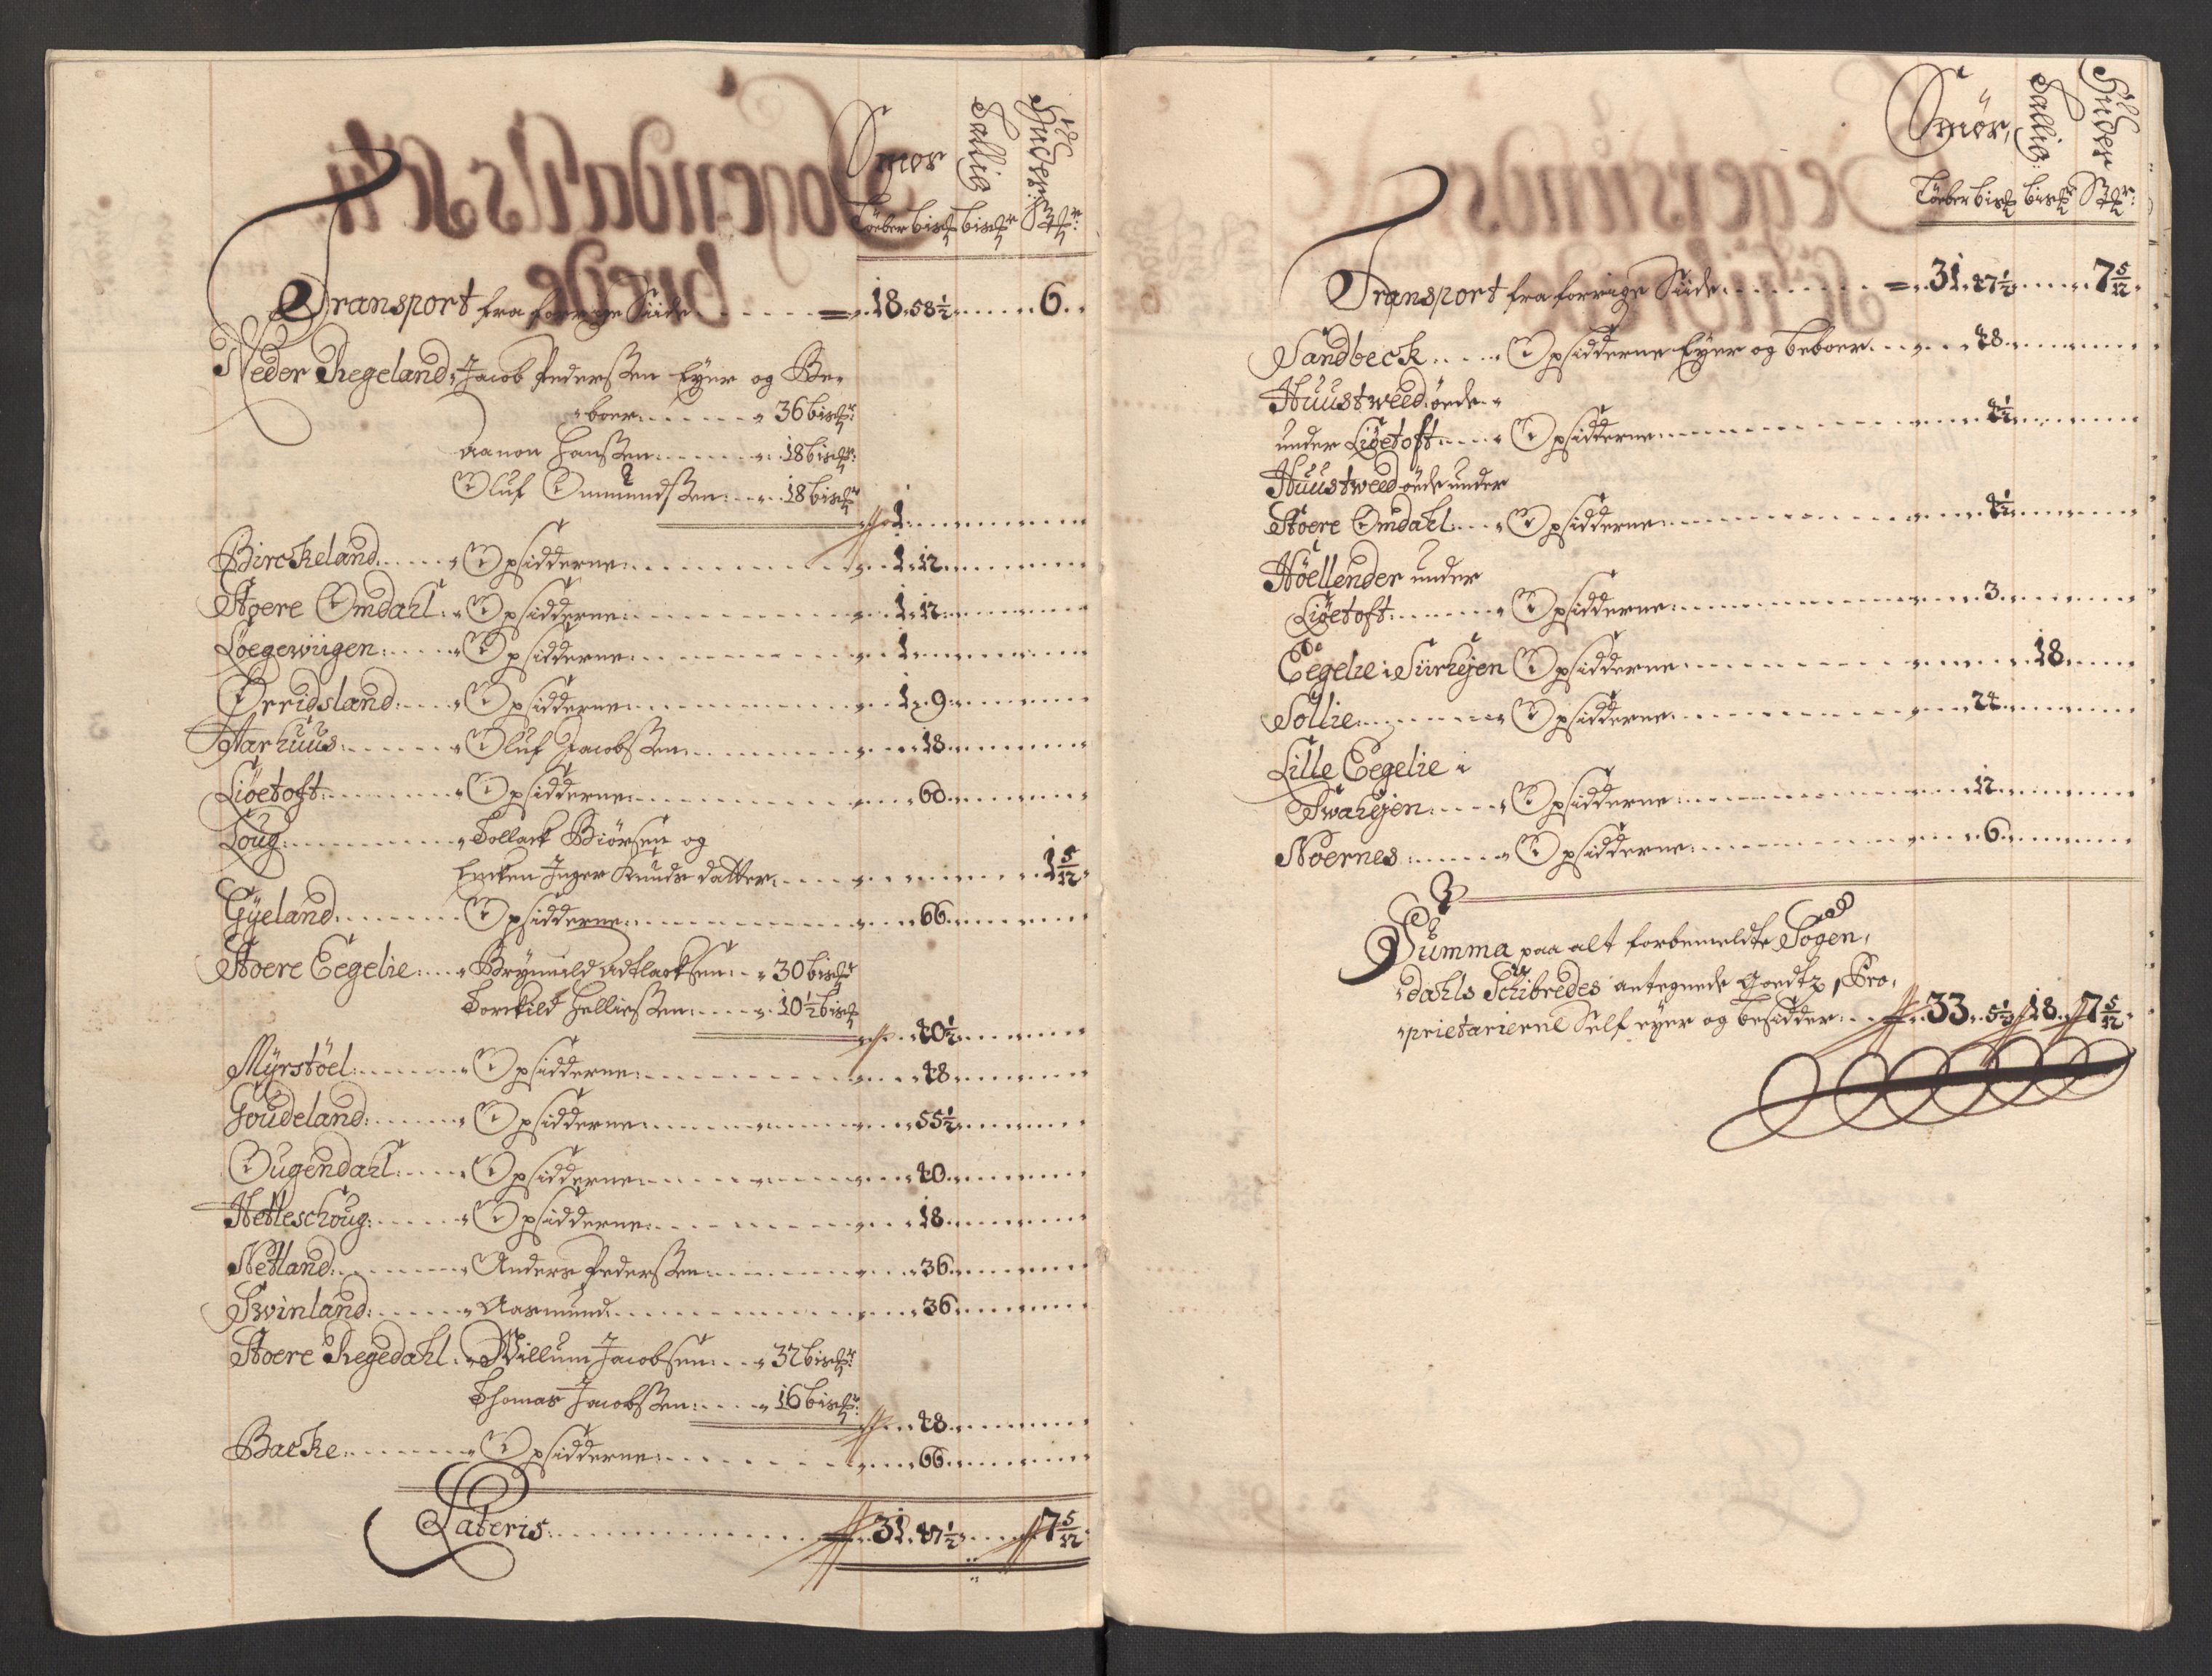 Smør Tallig Huder:
Løeber bis℔ bis℔r
Transport fra forrige Siide = 18. 58½ 6.
Neder Regeland, Jacob Pedersen Eyer og Be-
boer 36 bis℔r:
Aanon Hansen 18 bis℔r:
Oluf Ommundsen 18 bis℔r
1.
Birckeland Opsidderne 1. 12.
Stoere Omdahl Opsidderne 1. 12.
Løegewiigen Opsidderne 1.
Orridsland Opsidderne 1. 9.
Aarhuus Oluf Jacobsen 18.
Liøetoft Opsidderne 60.
Loug Tollack Biørsen og
Encken Inger Knuds datter 1 5/12
Gÿeland Opsidderne 66.
Stoere Eegelie Brÿnnild Adtlacksen 30 bis℔r
Torckild Helliesen 10½ bis℔
40½
Mÿrstöel Opsidderne 48.
Goudeland Opsidderne 55½
Ougendahl Opsidderne 40.
Hetleschoug Opsidderne 18.
Netland Anders Pedersen 36.
Swinland Aasmund 36.
Stoere Regedahl Willum Jacobsen 32 bis℔r:
Thomas Jacobsen 16 bis℔r:
48.
Backe Opsidderne 66.
Lateris 31. 47½ 7 5/12
Smør, Tallig: Huder
Løeber bis℔ bis℔r
Transport fra forrige Siide = 31. 47½ 7 5/12
Sandbeck Opsidderne Eyer og beboer 48.
Huustweed öede
under Liøetoft Opsidderne 4½
Huustweed öede under
Stoere Omdahl Opsidderne 4½
Höellender under
Liøetoft Opsidderne 3.
Eegelie i Siirhejen Opsidderne 18.
Sollie Opsidderne 24.
Lille Eegelie i
Swahejen Opsidderne 12.
Noernes Opsidderne 6.
Summa paa alt forbemeldte Sogen,
dahls Schibredes antegnede Goedtz, Pro,
prietarierne Self eyer og besidder 33. 5½ 18. 7 5/12